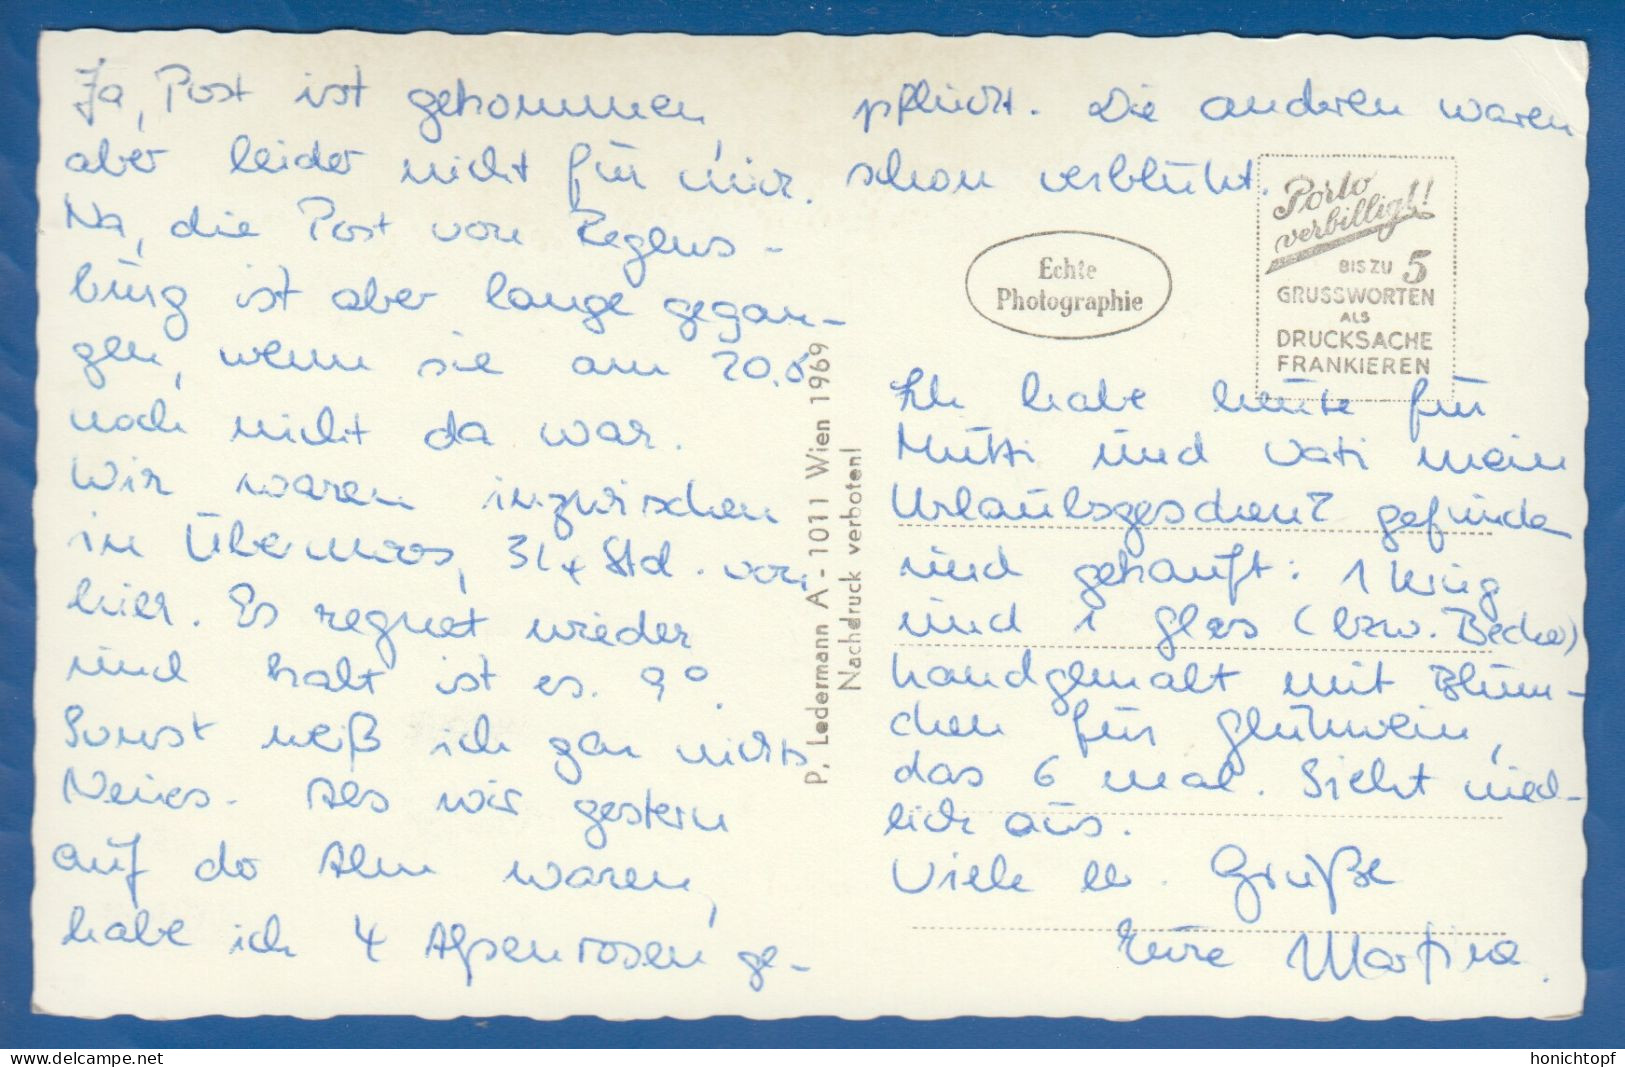 Ja, Post ist gekommen,
aber leider nicht für mich.
Na, die Post von Regens-
burg ist aber lange gegan-
gen, wenn sie am 20.8
noch nicht da war.
Wir waren inzwischen
in Übermoos, 3/4 Std. von
hier. Es regnet wieder
und kalt ist es. 9°.
Sonst weiß ich gar nichts
Neues. Als wir gestern
auf der Alm waren,
habe ich 4 Alpenrosen ge-
pflückt. Die anderen waren
schon verblüht.
Porto
verbilligt!
BIS ZU 5
GRUSSWORTEN
ALS
DRUCKSACHE
FRANKIEREN
Echte
Photographie
P. Ledermann A - 1011 Wien 1969
Nachdruck verboten!
Ich habe heute für
Mutti und Vati mein
Urlaubsgeschenk gefunden
und gekauft: 1 Krug
und 1 Glas (bzw. Becher)
handgemalt mit Blüm-
chen für Glühwein,
das 6 mal. Sieht nied-
lich aus.
Viele Grüße
Eure Martina.
honichtopf